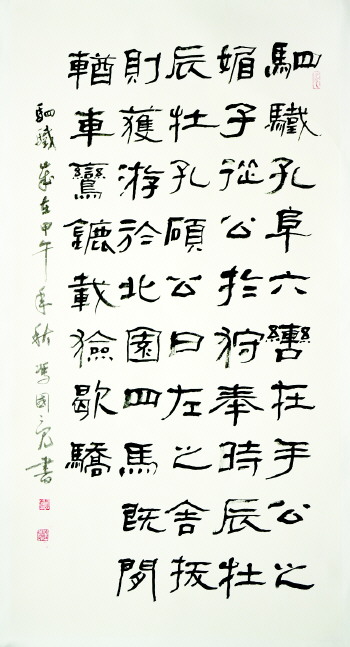 駟驖孔阜六轡在手公之
媚子從公於狩奉時辰牡
辰牡孔碩公曰左之舍拔
則獲游於北園四馬既閑
輶車鸞鑣載獫歇驕
駟驖歲在甲午年秋馮國亮書